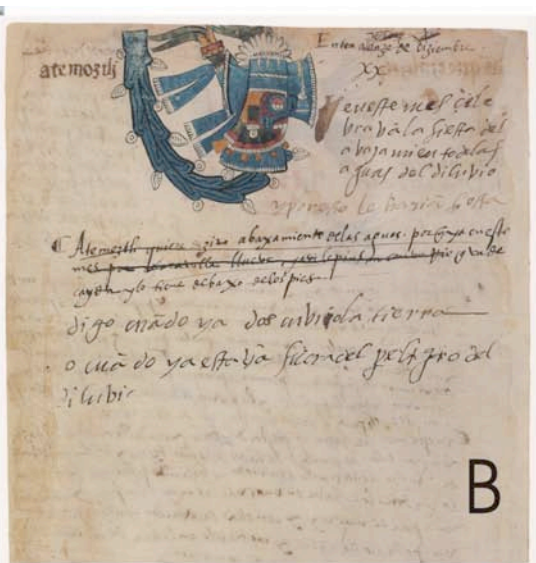 atemoztli
Entra a doze de diziembre
XX
en este mes çele
brava la fiesta del
abajamiento de las
aguas del diluvio
y por eso le hazian fiesta
Atemoztli quiere dezir abaxamiento de las aguas. porq ya en este
mes por llueve, y asi le pintan pie
y lo tiene debaxo de los pies
digo cuãdo ya descubriola tierra
o cuãdo ya estava fuera del peligro del
diluvio
B